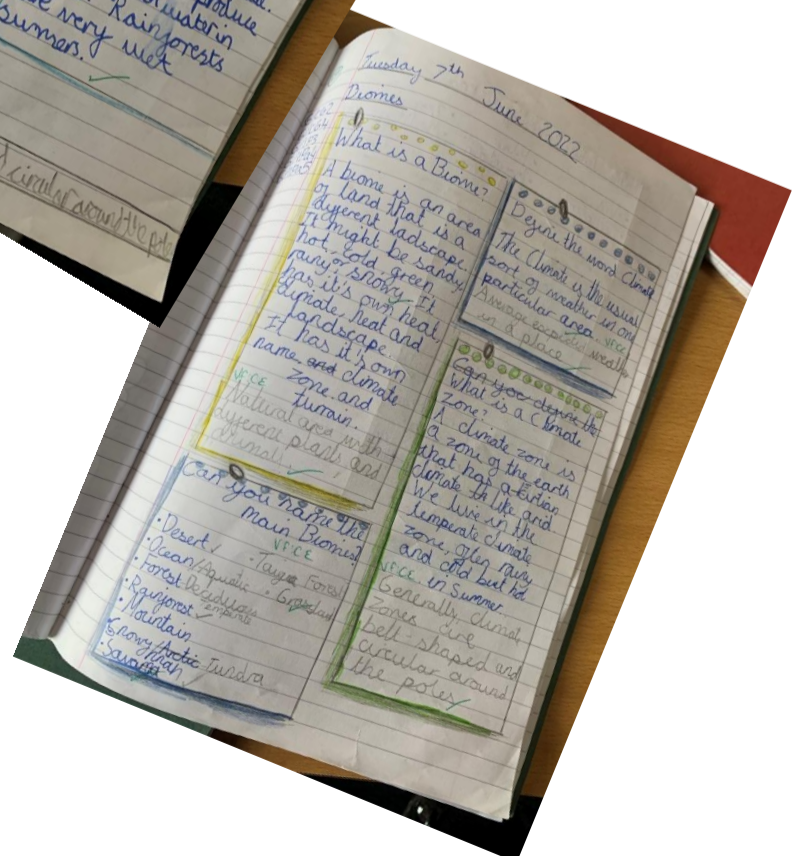 produce
waterin
Rainforests
very wet
summers.
circular around the
Tuesday 7th June 2022
Biomes
What is a Biome?
A biome is an area
of land that is a
different ladscape
It might be sandy
hot, cold, green,
rainy or snowy. It
has it's own heat,
climate, heat and
landscape.
It has it's own
name, and climate
zone and
turrain.
VFCE
Natural area with
different plants and
animals
Define the word Climate
The Climate is the usual
sort of weather in one
particular area.
VFCE
Average
in a place
Can you define the
What is a Climate
zone?
A climate zone is
a zone of the earth
that has a
climate
life and
We live in the
temperate climate
zone, often rainy
and cold but hot
in Summer.
VFCE
Generally, climat
zones are
belt-shaped and
circular around
the poles
Can you name the
main Biomes?
VFCE
• Desert
• Ocean/Aquatic
• Forest Decidulous
Temperate
• Rainforest
• Mountain
• Snowy/Arctic Tundra
• Savannah
• Taiga Forest